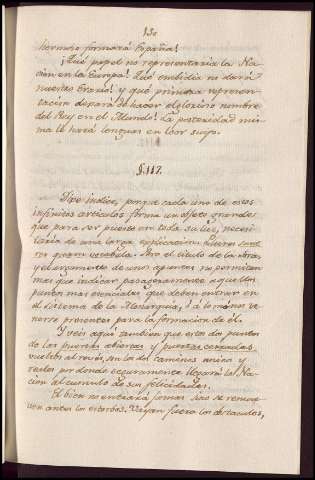 130
hermoso formará España!
¡Qué papel no representaria la Na-
cion en la Europa! Qué embidia no dará
nuestro Erario! y qué primera represen-
tacion dexará de hacer el glorioso nombre
del Rey en el Mundo! La posteridad mis-
ma le hará lenguas en loor suyo.
§. 117.
Dixe indice, porque cada uno de estos
infinitos articulos forma un objeto grande
que para ser puesto en toda su luz, necesi-
taria de una larga explicacion
vocabula. Por el titulo de la obra,
y el argumento de unos apuntes no permiten
mas que indicar pasageramente aquellos
puntos mas esenciales que deben entrar en
el sistema de la Monarquia, ó à lo menos te-
nerse presentes para la formacion de él.
Y veis aqui tambien que estos dos puntos
de las puertas abiertas y puertas cerradas,
vuelto al revés, son los dos caminos unico y
rectos por donde seguramente llegará la Na-
cion al cumulo de sus felicidades.
El bien no entrará jamas si no se remue-
ven antes los estorbos. Vayan fuera los obstaculos,